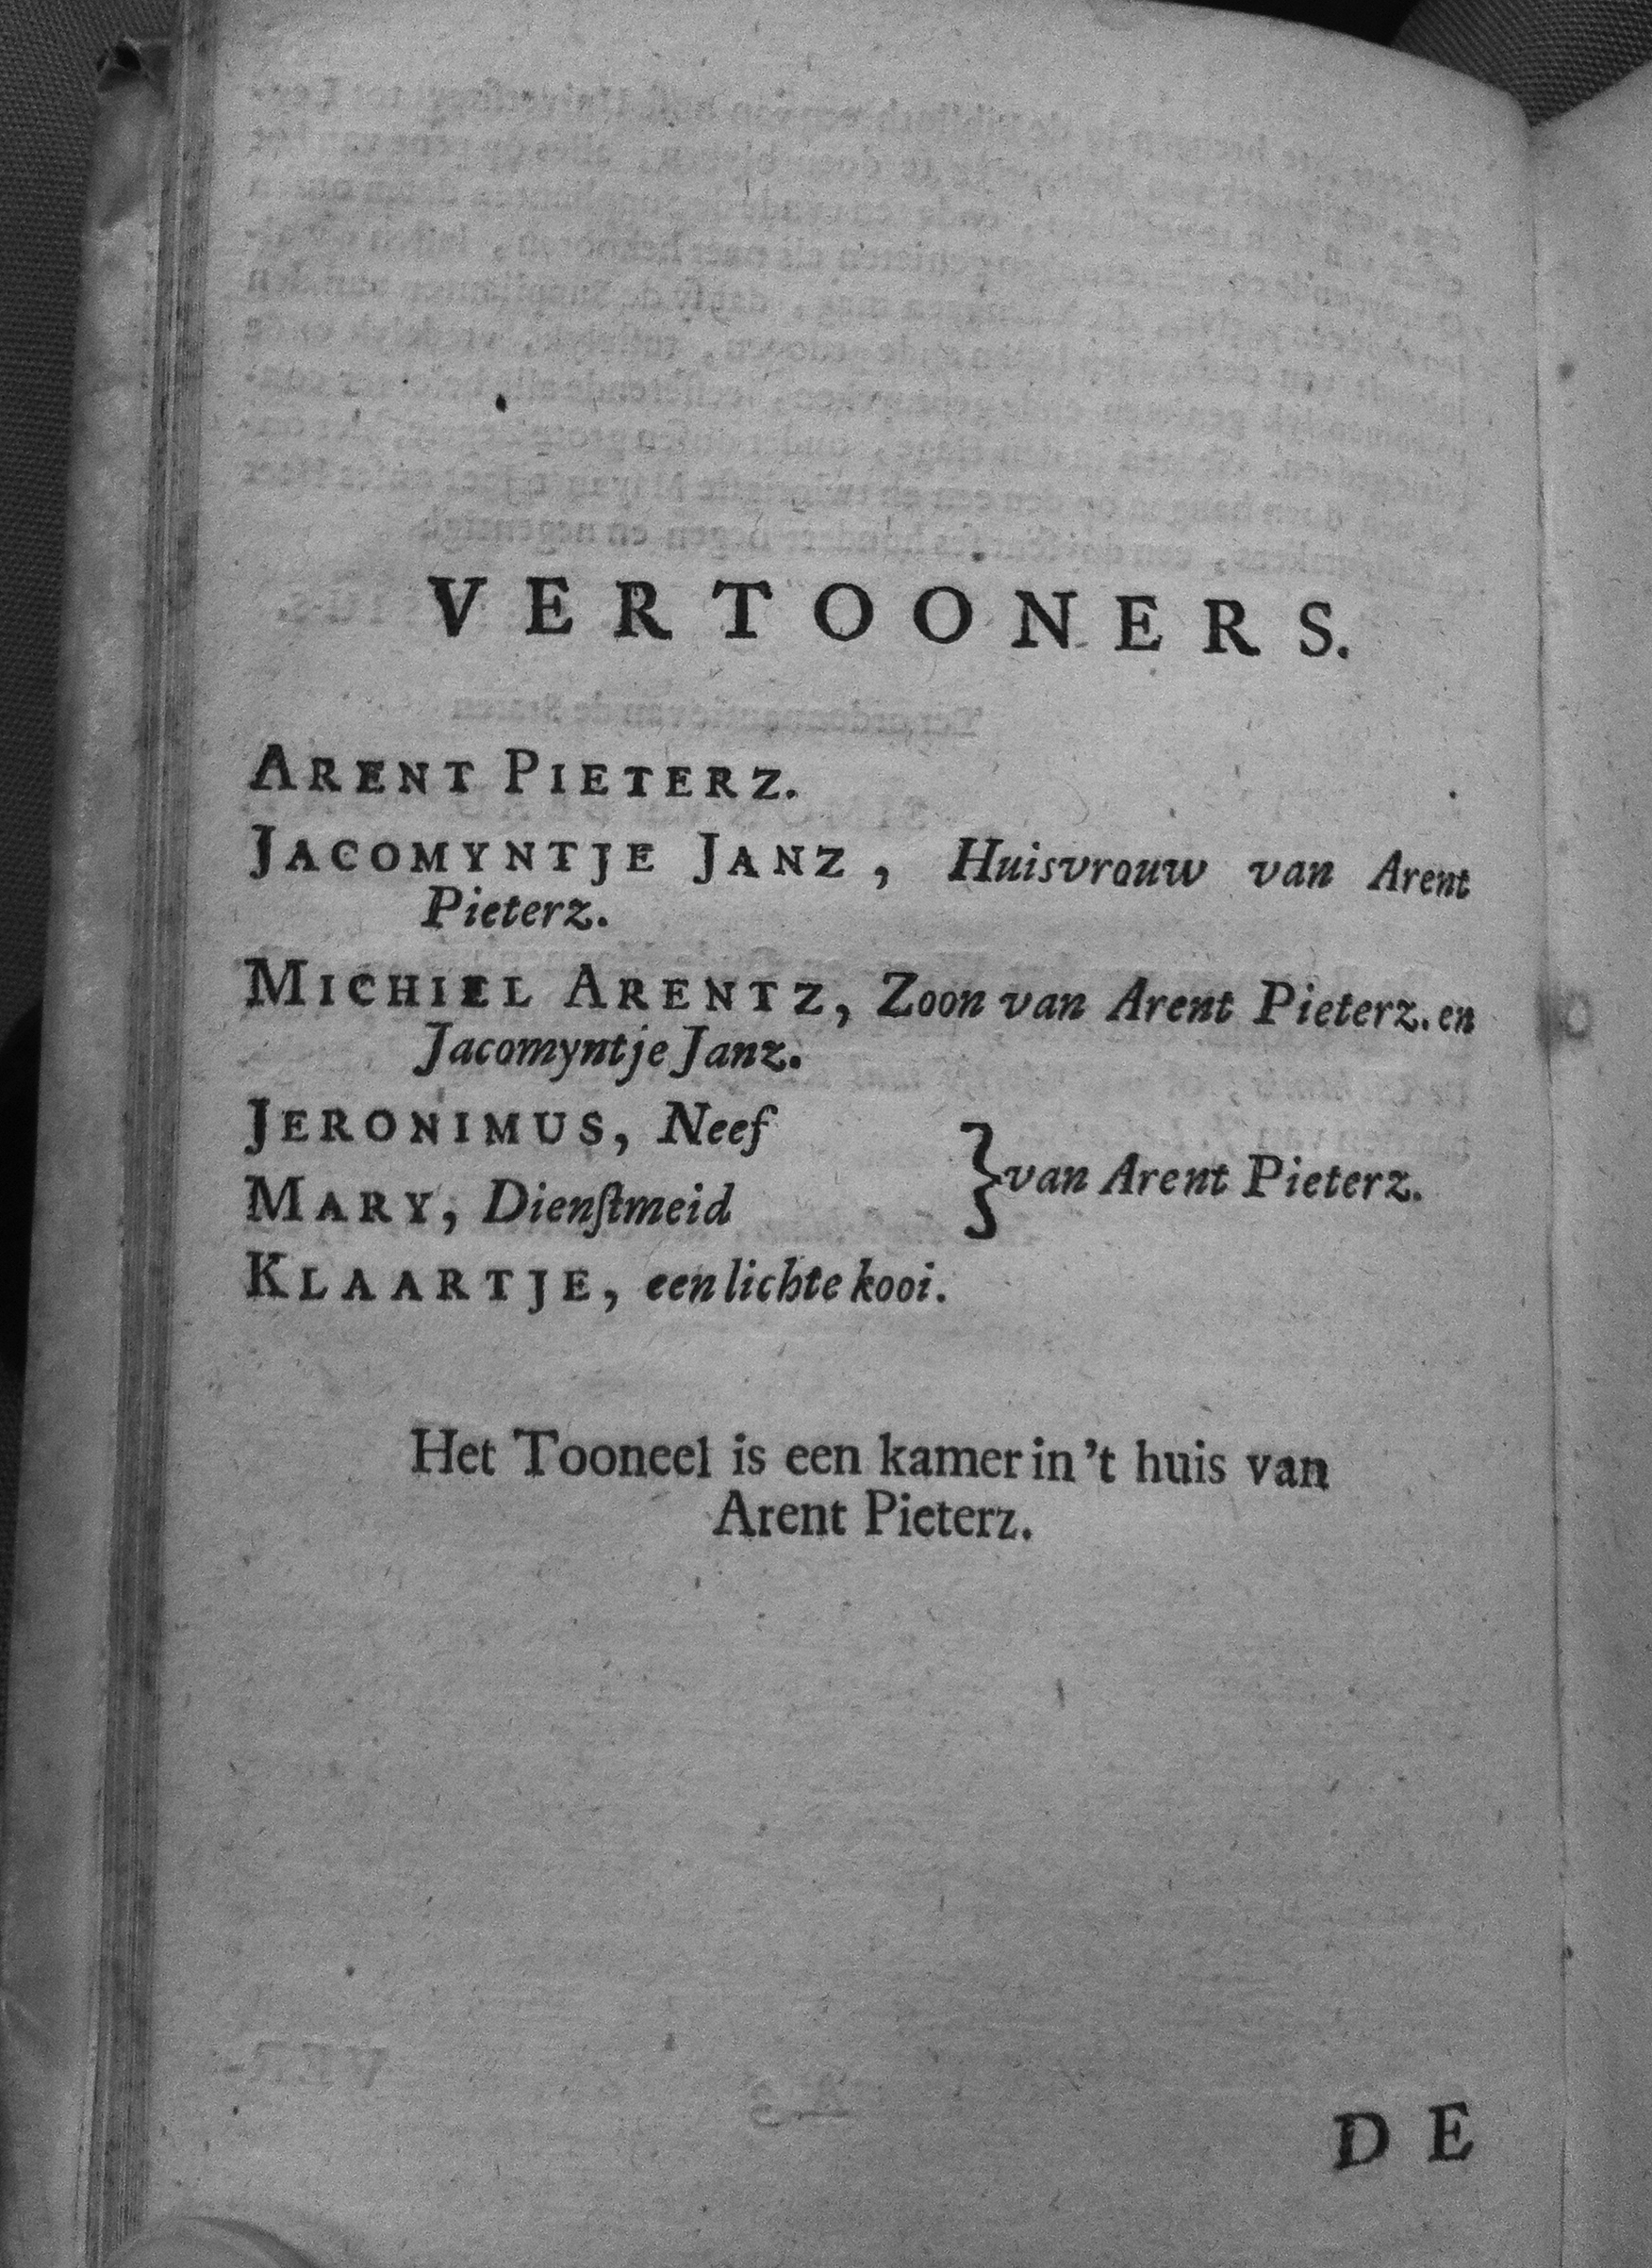 VERTOONERS.
ARENT PIETERZ.
JACOMYNTJE JANZ, Huisvrouw van Arent
Pieterz.
MICHIEL ARENTZ, Zoon van Arent Pieterz. en
Jacomyntje Janz.
JERONIMUS, Neef
MARY, Dienſtmeid
} van Arent Pieterz.
KLAARTJE, een lichte kooi.
Het Tooneel is een kamer in 't huis van
Arent Pieterz.
DE